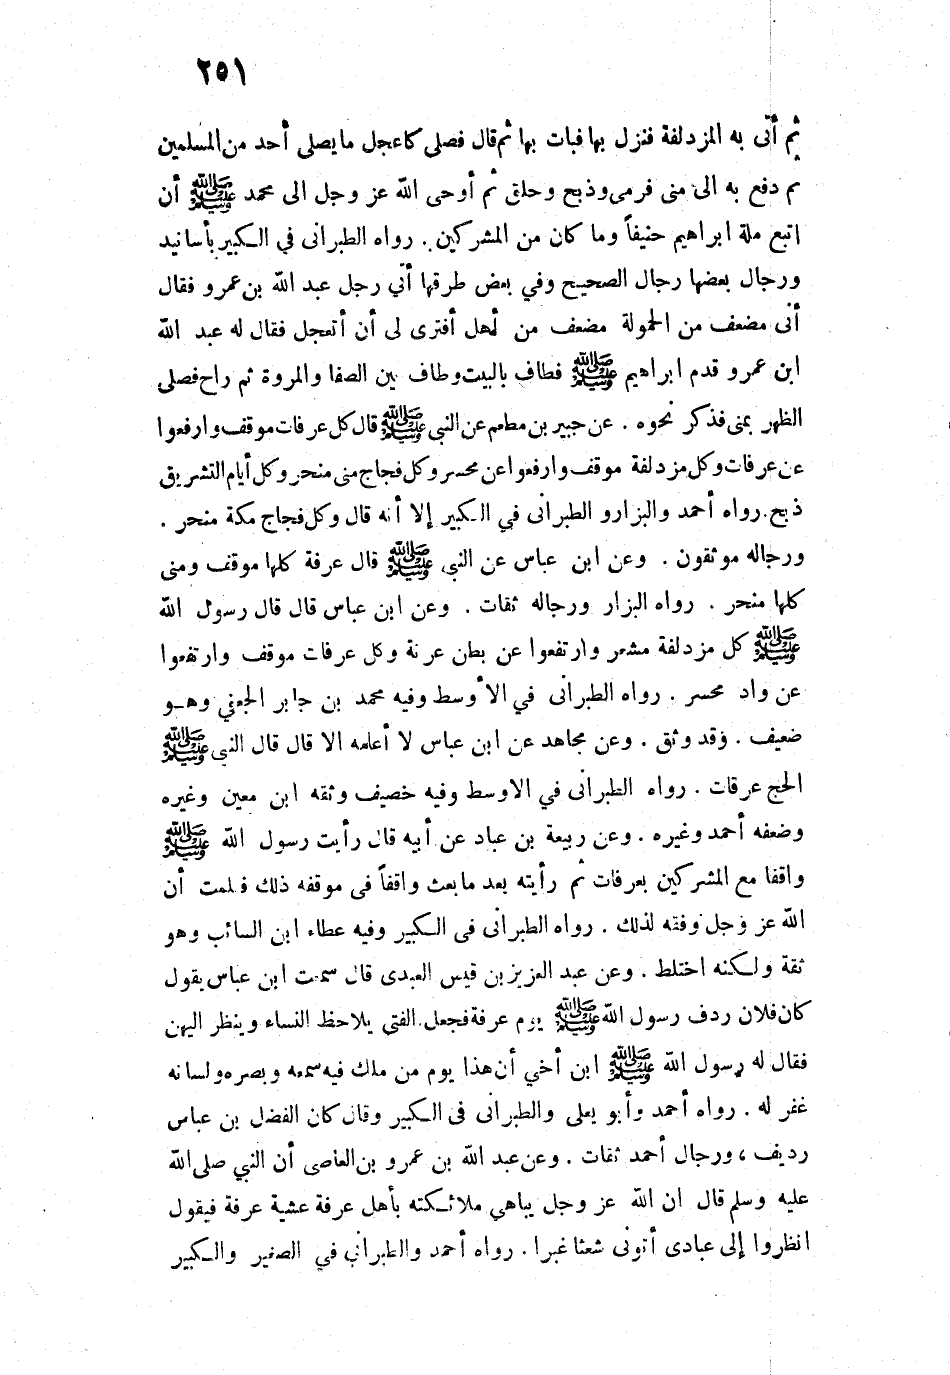 ٢٥١
ثم أتى به المزدلفة فنزل بها فبات بها ثم قال فصلى كاعجل ما يصلى أحد من المسلمين
ثم دفع به الى منى فرمى وذبح وحلق ثم أوحى الله عز وجل الى محمد ﷺ أن
اتبع ملة ابراهيم حنيفاً وما كان من المشركين . رواه الطبرانى في الكبير بأسانيد
ورجال بعضها رجال الصحيح وفي بعض طرقها أتي رجل عبد الله بن عمرو فقال
أنى مضعف من الحمولة مضعف من أهل أفترى لى أن أتعجل فقال له عبد الله
ابن عمرو قدم ابراهيم ﷺ فطاف بالبيت وطاف بين الصفا والمروة ثم راح فصلى
الظهر بمنى فذكر نحوه . عن جبير بن مطعم عن النبي ﷺ قال كل عرفات موقف وارفعوا
عن عرفات وكل مزدلفة موقف وارفعوا عن محسر وكل فجاج منى منحر وكل أيام التشريق
ذبح . رواه أحمد والبزارو الطبرانى في الكبير إلا أنه قال وكل فجاج مكة منحر .
ورجاله موثقون . وعن ابن عباس عن النبي ﷺ قال عرفة كلها موقف ومنى
كلها منحر . رواه البزار ورجاله ثقات . وعن ابن عباس قال قال رسول الله
ﷺ كل مزدلفة مشعر وارتفعوا عن بطن عرنة وكل عرفات موقف وارتفعوا
عن واد محسر . رواه الطبرانى في الأوسط وفيه محمد بن جابر الجعفي وهو
ضعيف . وقد وثق . وعن مجاهد عن ابن عباس لا أعلمه الا قال قال النبي ﷺ
الحج عرفات . رواه الطبرانى في الاوسط وفيه خصيف وثقه ابن معين وغيره
وضعفه أحمد وغيره . وعن ربيعة بن عباد عن أبيه قال رأيت رسول الله ﷺ
واقفا مع المشركين بعرفات ثم رأيته بعد ما بعث واقفاً فى موقفه ذلك فعلمت أن
الله عز وجل وفقه لذلك . رواه الطبرانى فى الكبير وفيه عطاء ابن السائب وهو
ثقة ولكنه اختلط . وعن عبد العزيز بن قيس العبدى قال سمعت ابن عباس يقول
كان فلان ردف رسول الله ﷺ يوم عرفة فجعل الفتى يلاحظ النساء وينظر اليهن
فقال له رسول الله ﷺ ابن أخي أن هذا يوم من ملك فيه سمعه وبصره ولسانه
غفر له . رواه أحمد وأبو يعلى والطبرانى فى الكبير وقال كان الفضل بن عباس
رديف ، ورجال أحمد ثقات . وعن عبد الله بن عمرو بن العاصى أن النبي صلى الله
عليه وسلم قال ان الله عز وجل يباهي ملائكته بأهل عرفة عشية عرفة فيقول
انظروا إلى عبادى أتونى شعثا غبرا . رواه أحمد والطبرانى في الصغير والكبير